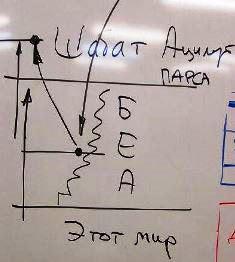 Шхат Ацилут
ПАРСА
Б
Е
А
Этот мир